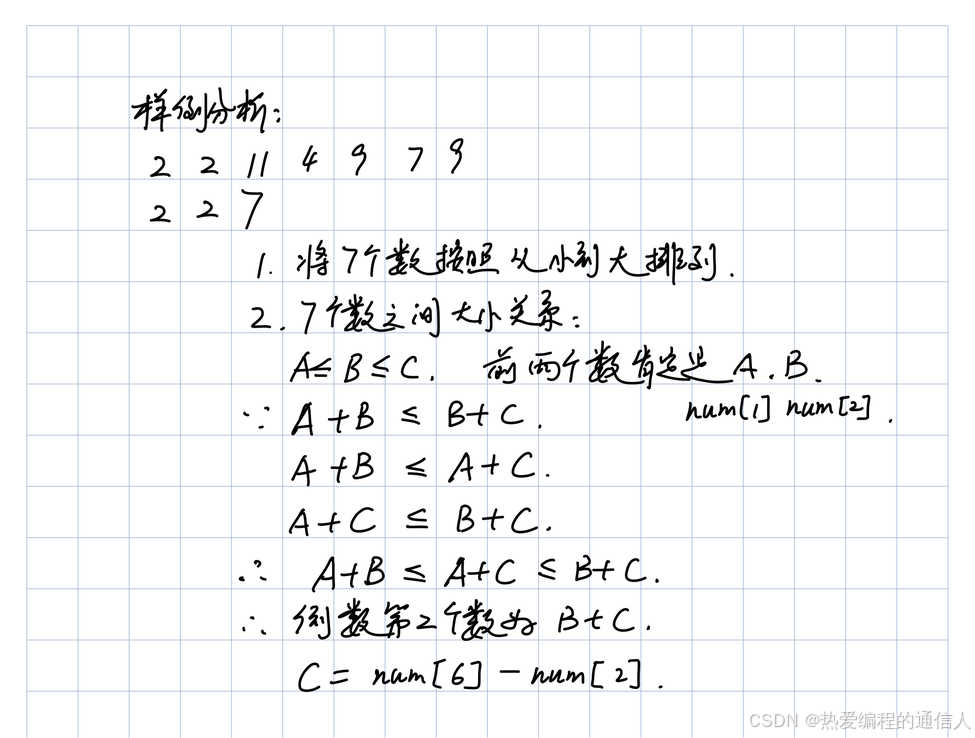 样例分析:
2 2 11 4 9 7 9
2 2 7
1. 将7个数按照从小到大排列.
2. 7个数之间大小关系:
A≤B≤C. 前两个数肯定是A.B.
num[1] num[2].
∵ A+B ≤ B+C.
A+B ≤ A+C.
A+C ≤ B+C.
∴ A+B ≤ A+C ≤ B+C.
∴ 倒数第2个数为 B+C.
C = num[6] - num[2].
CSDN @热爱编程的通信人